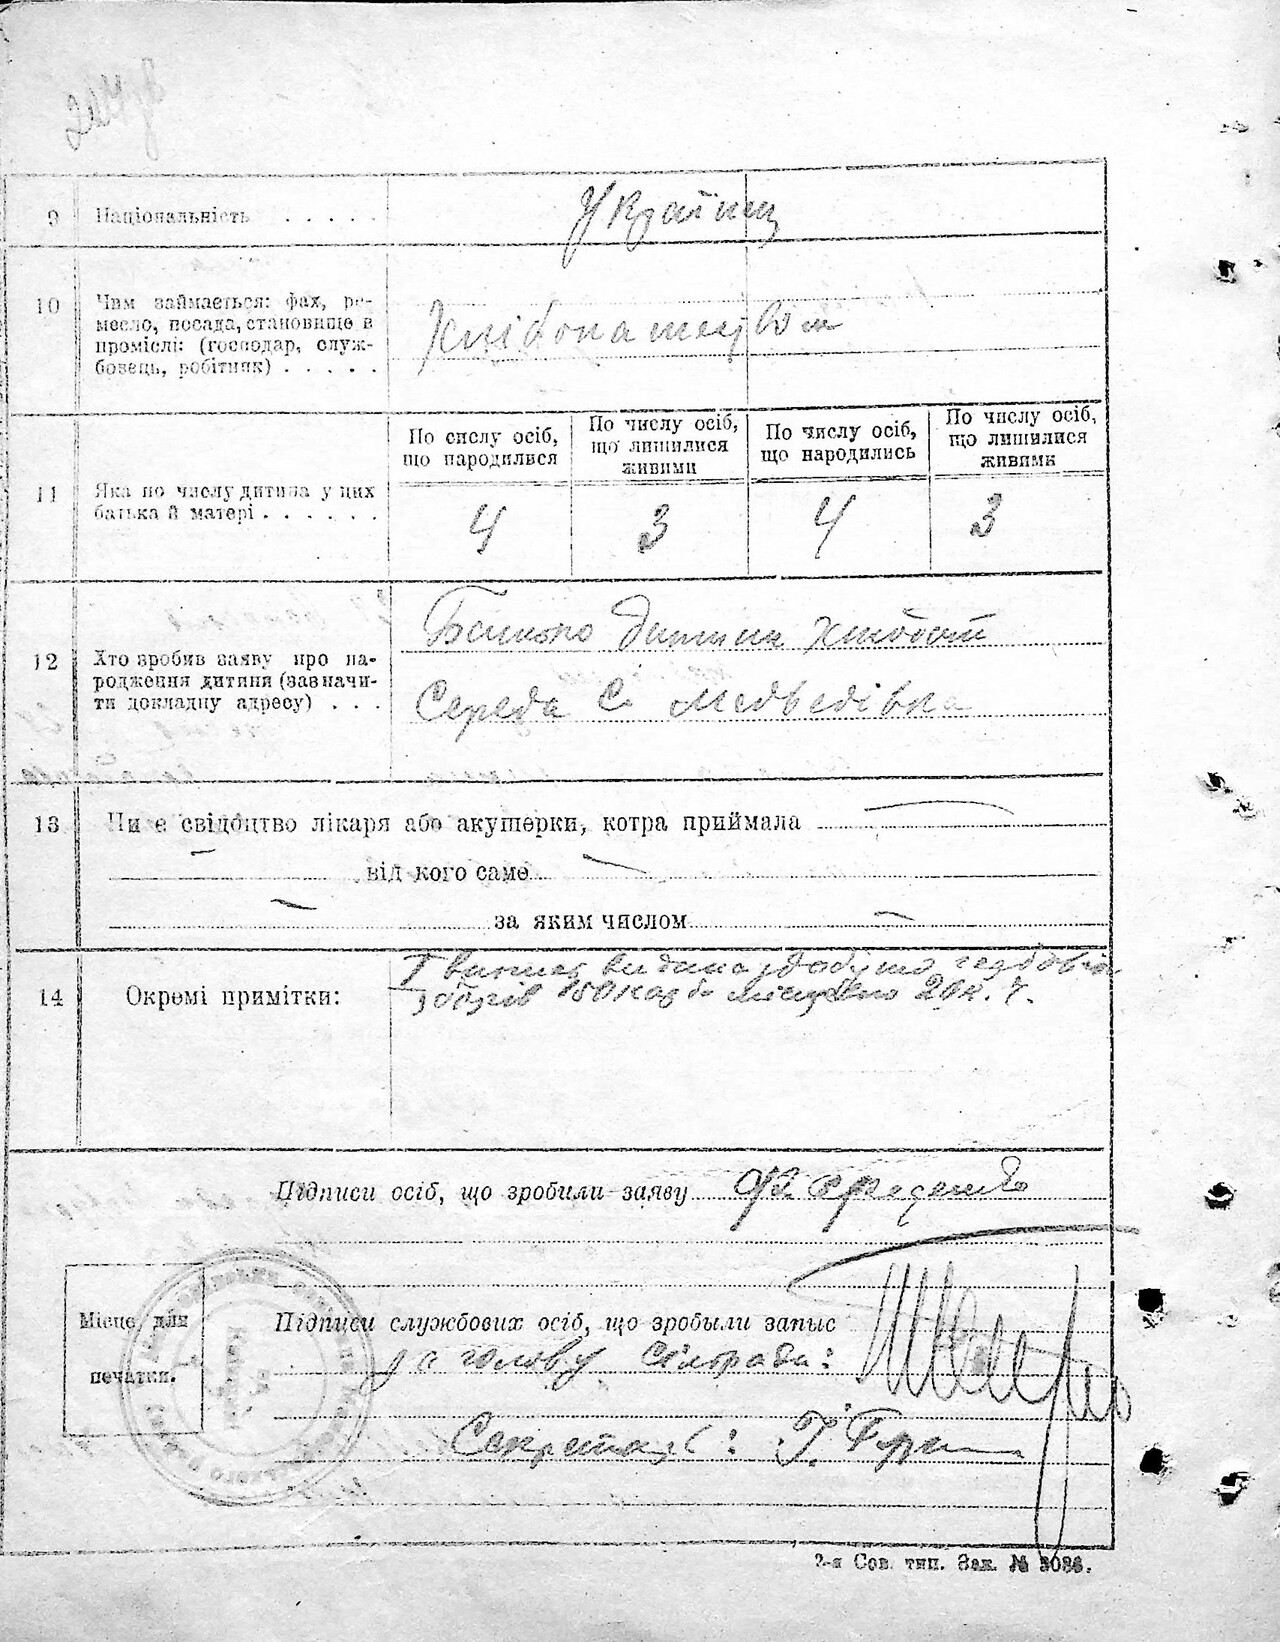 9 Національність . . . . .
Українц
10 Чим займається: фах, ре-
месло, посада, становище в
промислі: (господар, служ-
бовець, робітник) . . . . .
Хлібопашцівом
11 Яка по числу дитина у цих
батька й матері . . . . . .
По сислу осіб,
що народилися
По числу осіб,
що лишилися
живими
По числу осіб,
що народились
По числу осіб,
що лишилися
живими
4 3 4 3
12 Хто зробив заяву про на-
родження дитини (зазначи-
ти докладну адресу) . . .
Батько дитини
Середа С. Медведівка
13 Чи є свідоцтво лікаря або акушерки, котра приймала
від кого саме
за яким числом
14 Окремі примітки:
видана
Підписи осіб, що зробили заяву
Місце для
печатки.
Підписи службових осіб, що зробыли запыс
за голову сільради:
Секретар:
2-я Сов. тип. Зак. № 3086.